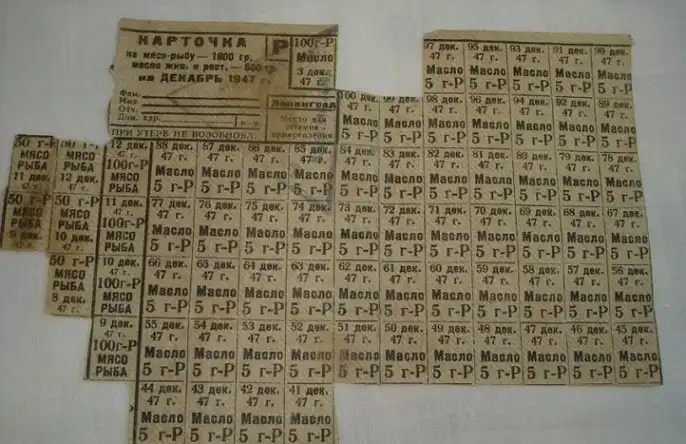 КАРТОЧКА
на мясо-рыбу — 1800 гр.
масло жив. и раст. — 800 гр.
на ДЕКАБРЬ 1947 г.
Р
100г-Р
Масло
3 дек.
47 г.
Фам.
Имя
Отч.
Дом, квр.
Ленинград
Место для
прикрепления
ПРИ УТЕРЕ НЕ ВОЗОБНОВЛ.
97 дек. 95 дек. 93 дек. 91 дек. 90 дек.
47 г. 47 г. 47 г. 47 г. 47 г.
Масло Масло Масло Масло Масло
5 г-Р 5 г-Р 5 г-Р 5 г-Р 5 г-Р
100 дек. 99 дек. 98 дек. 96 дек. 94 дек. 92 дек. 89 дек.
47 г. 47 г. 47 г. 47 г. 47 г. 47 г. 47 г.
Масло Масло Масло Масло Масло Масло Масло
5 г-Р 5 г-Р 5 г-Р 5 г-Р 5 г-Р 5 г-Р 5 г-Р
50 г-Р
МЯСО МЯСО
РЫБА РЫБА
11 дек. 12 дек.
47 г. 47 г.
12 дек. 88 дек. 87 дек. 86 дек. 85 дек. 84 дек. 83 дек. 82 дек. 81 дек. 80 дек. 79 дек. 78 дек.
47 г. 47 г. 47 г. 47 г. 47 г. 47 г. 47 г. 47 г. 47 г. 47 г. 47 г. 47 г.
100г-Р Масло Масло Масло Масло Масло Масло Масло Масло Масло Масло Масло
МЯСО 5 г-Р 5 г-Р 5 г-Р 5 г-Р 5 г-Р 5 г-Р 5 г-Р 5 г-Р 5 г-Р 5 г-Р 5 г-Р
РЫБА
50 г-Р 50 г-Р
МЯСО МЯСО
РЫБА РЫБА
9 дек. 10 дек.
47 г.
11 дек. 77 дек. 76 дек. 75 дек. 74 дек. 73 дек. 72 дек. 71 дек. 70 дек. 69 дек. 68 дек. 67 дек.
47 г. 47 г. 47 г. 47 г. 47 г. 47 г. 47 г. 47 г. 47 г. 47 г. 47 г. 47 г.
100г-Р Масло Масло Масло Масло Масло Масло Масло Масло Масло Масло Масло
МЯСО 5 г-Р 5 г-Р 5 г-Р 5 г-Р 5 г-Р 5 г-Р 5 г-Р 5 г-Р 5 г-Р 5 г-Р 5 г-Р
РЫБА
50 г-Р
МЯСО
РЫБА
8 дек.
47 г.
10 дек. 66 дек. 65 дек. 64 дек. 63 дек. 62 дек. 61 дек. 60 дек. 59 дек. 58 дек. 57 дек. 56 дек.
47 г. 47 г. 47 г. 47 г. 47 г. 47 г. 47 г. 47 г. 47 г. 47 г. 47 г. 47 г.
100г-Р Масло Масло Масло Масло Масло Масло Масло Масло Масло Масло Масло
МЯСО 5 г-Р 5 г-Р 5 г-Р 5 г-Р 5 г-Р 5 г-Р 5 г-Р 5 г-Р 5 г-Р 5 г-Р 5 г-Р
РЫБА
9 дек. 55 дек. 54 дек. 53 дек. 52 дек. 51 дек. 50 дек. 49 дек. 48 дек. 47 дек. 46 дек. 45 дек.
47 г. 47 г. 47 г. 47 г. 47 г. 47 г. 47 г. 47 г. 47 г. 47 г. 47 г. 47 г.
100г-Р Масло Масло Масло Масло Масло Масло Масло Масло Масло Масло Масло
МЯСО 5 г-Р 5 г-Р 5 г-Р 5 г-Р 5 г-Р 5 г-Р 5 г-Р 5 г-Р 5 г-Р 5 г-Р 5 г-Р
РЫБА
44 дек. 43 дек. 42 дек. 41 дек.
47 г. 47 г. 47 г. 47 г.
Масло Масло Масло Масло
5 г-Р 5 г-Р 5 г-Р 5 г-Р